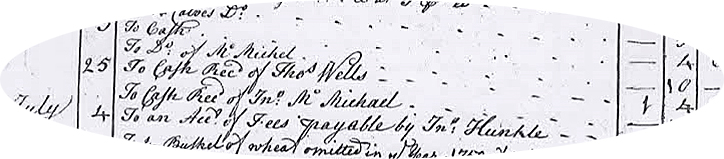 Calves Do.
To Cash
To Do. of Mc Michel
25 To Cash Recd of Thos Wells — 4
To Cash Recd of Jno. Mc Michael — 10
July 4 To an Acct of Fees payable by Jno. Hunkle 1 4
Bushel of wheat omitted in Year